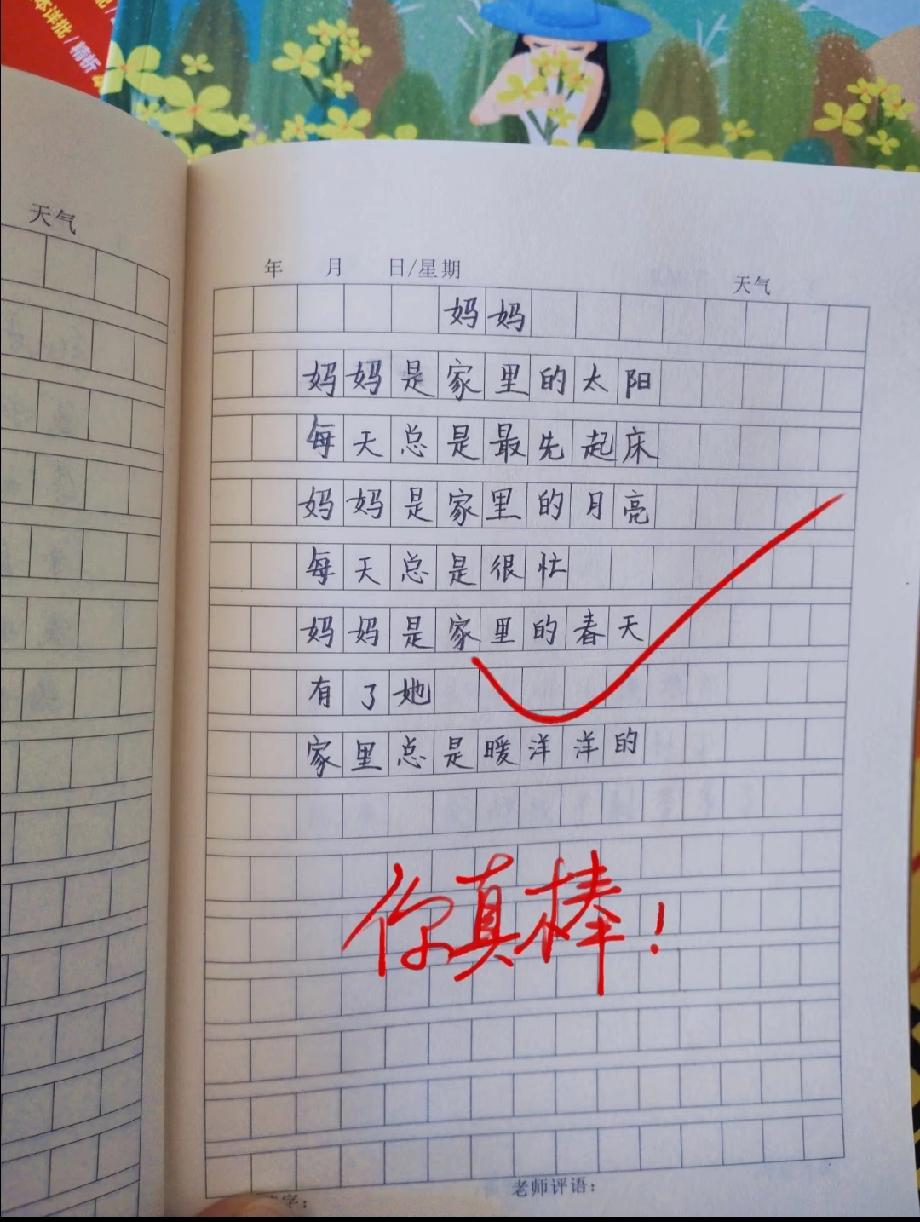 本详批/精析
天气
年 月 日/星期
天气
妈妈
妈妈是家里的太阳
每天总是最先起床
妈妈是家里的月亮
每天总是很忙
妈妈是家里的春天
有了她
家里总是暖洋洋的
你真棒！
老师评语：